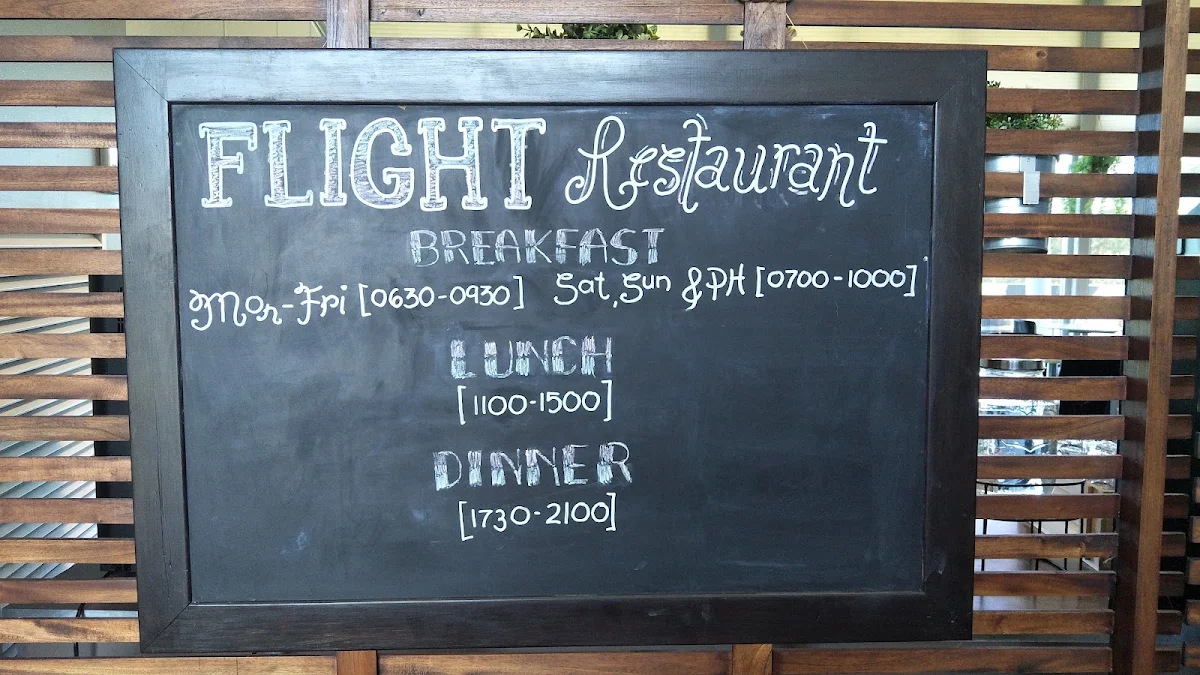 FLIGHT Restaurant
BREAKFAST
Mon-Fri [0630-0930] Sat, Sun & PH [0700-1000]
LUNCH
[1100-1500]
DINNER
[1730-2100]